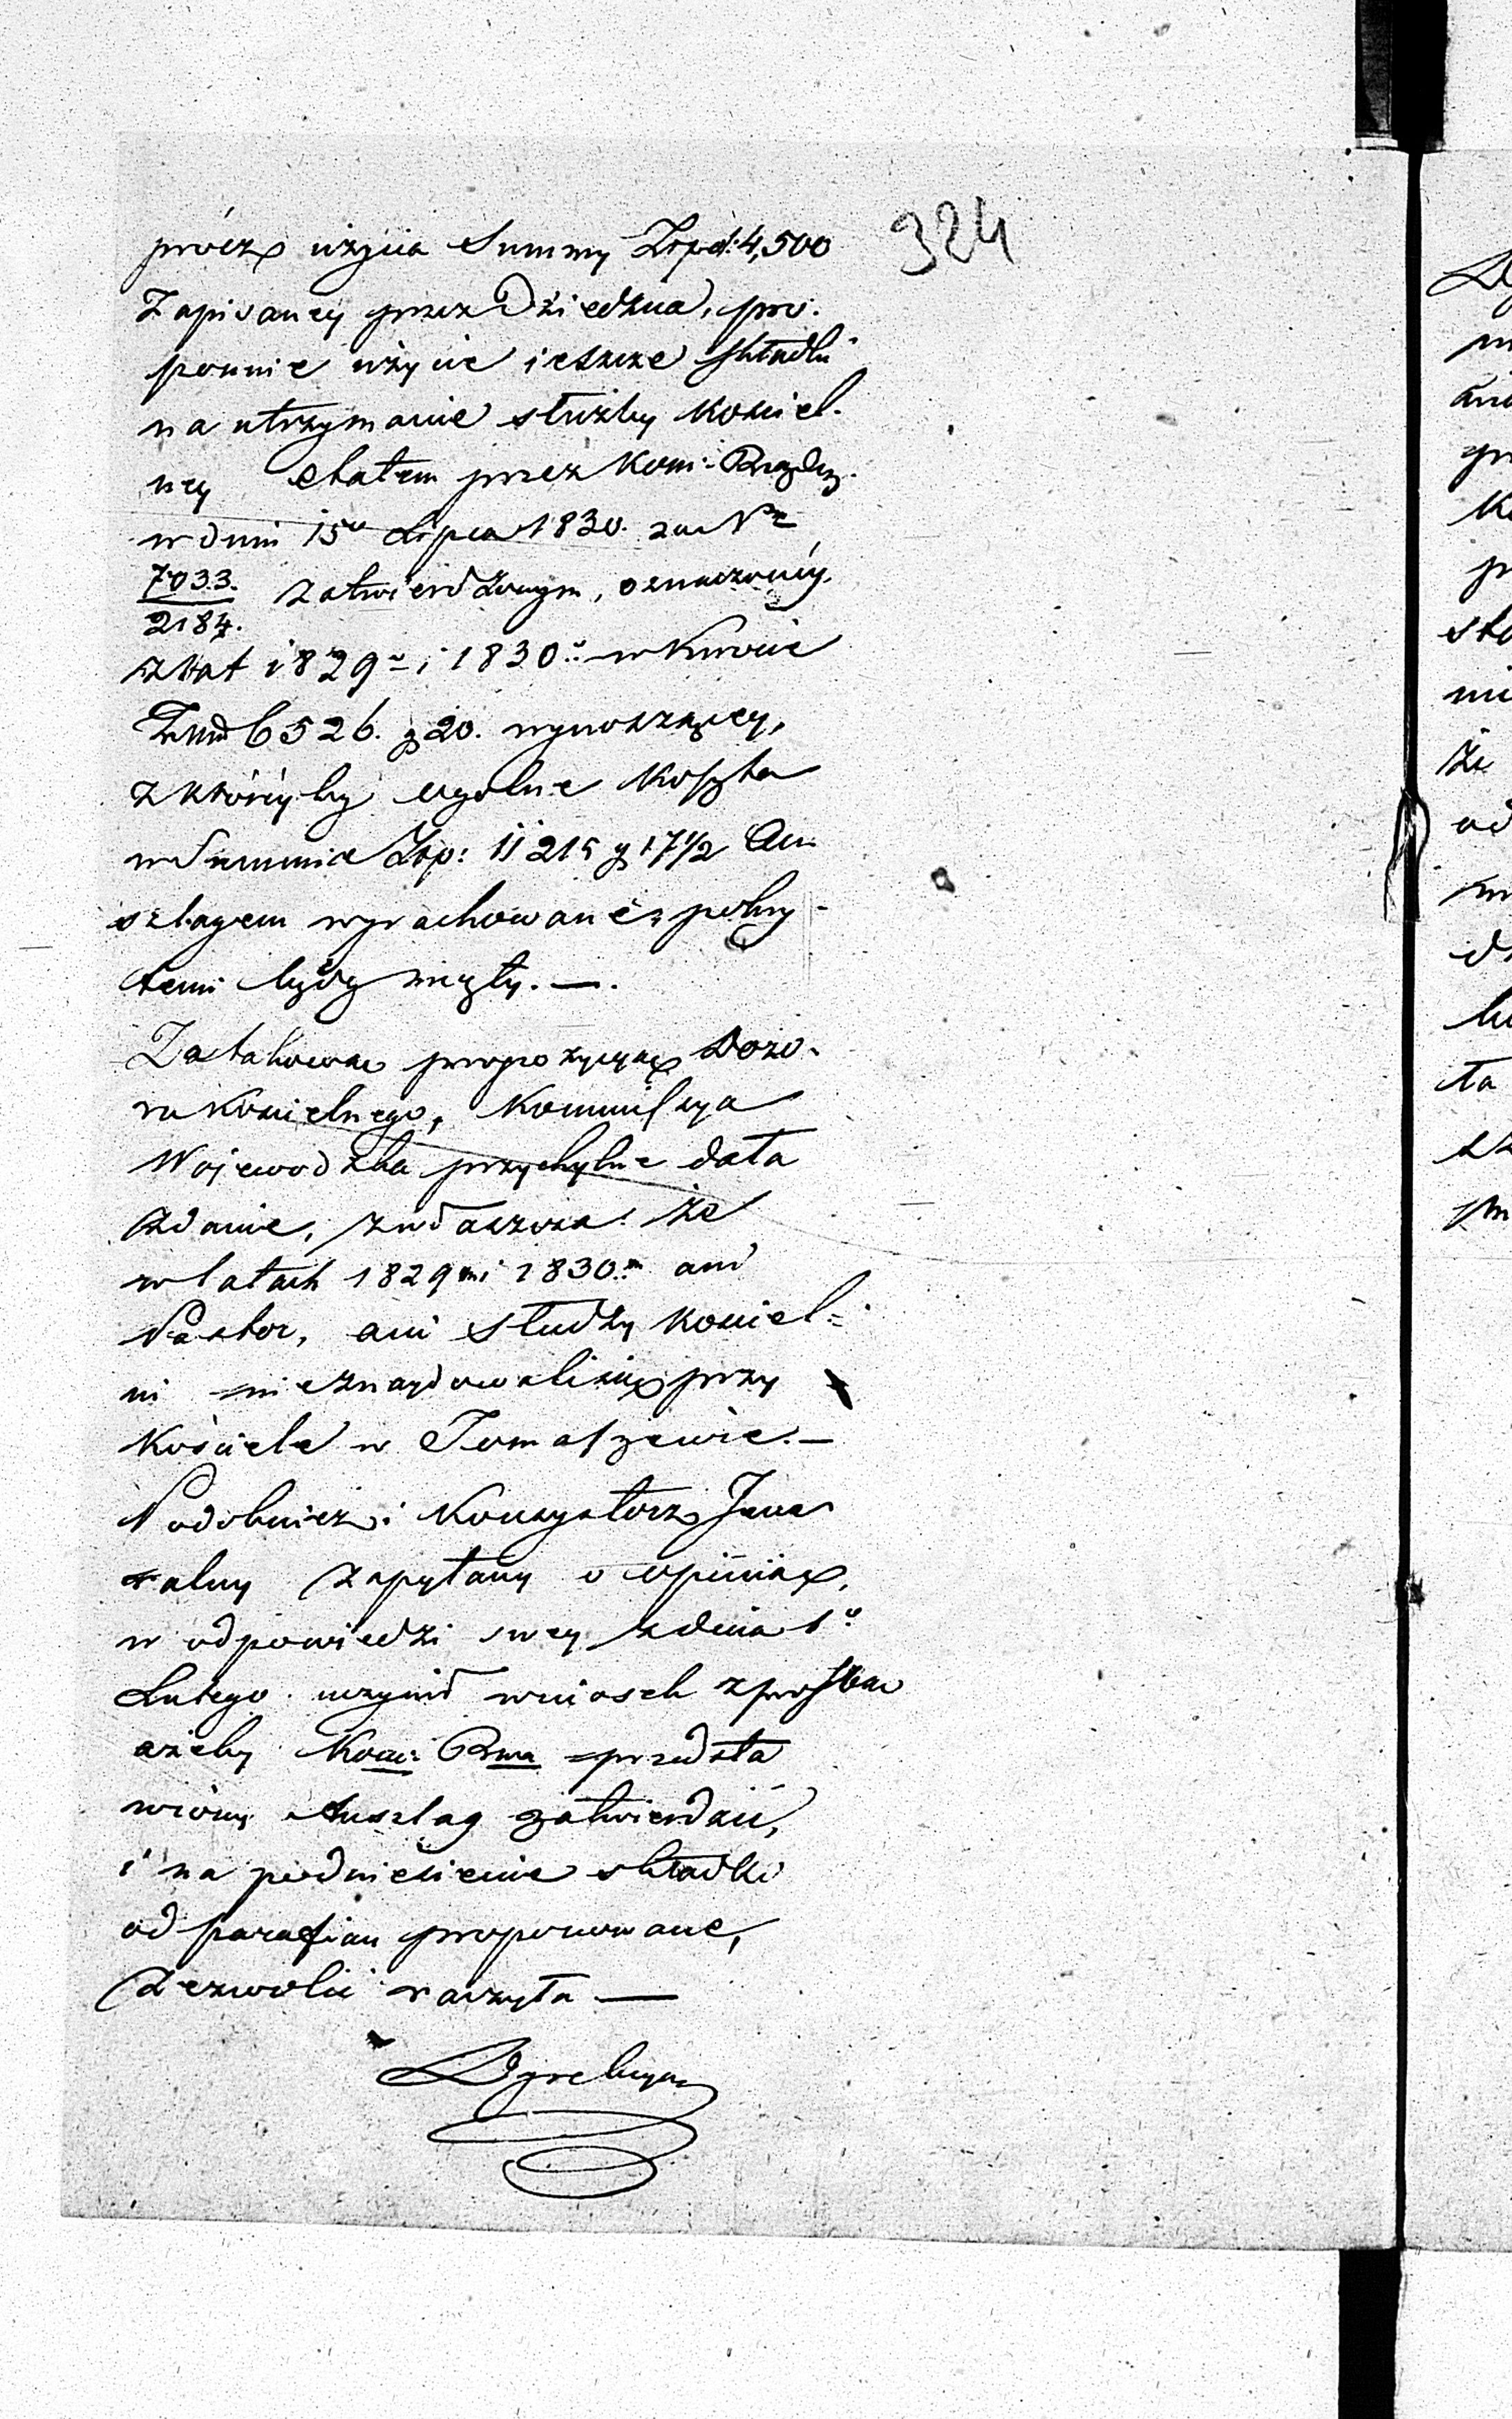 324
prócz użycia Summy Złpol: 4,500
Zapisaney przez Dziedzica, pro-
ponuie użycie ieszcze składki
na utrzymanie służby Kościel-
ney etatem przez Kom: Rządzą.
w dniu 15go Lipca 1830. za Nr
7033./2184. zatwierdzonym, oznaczonéy
z lat 1829o i 1830o w kwocie
6526. g 20. wynoszącey,
z któréyby ogólne koszta
w Summie Złp: 11215 g 17 1/2 An-
szlagem wyrachowane, pokry-
temi bydź mogły. —.
Za takową propozycyą Dozo-
ru Kościelnego, Kommissya
Wojewodzka przychylne dała
zdanie, zwłaszcza że
w latach 1829m i 1830m ani
Pastor, ani słudzy kościel-
ni nieznaydowali się przy
kościele w Tomaszewie. —
Podobnież i Konsystorz Jene
ralny zapytany o opiniią,
w odpowiedzi swey z dnia 1o
Lutego uczynił wniosek z prośbą
ażeby Kom: Rwa przedsta
wiony Anszlag zatwierdzić,
i na podniesienie składki
od parafian proponowane,
zezwolić raczyła —